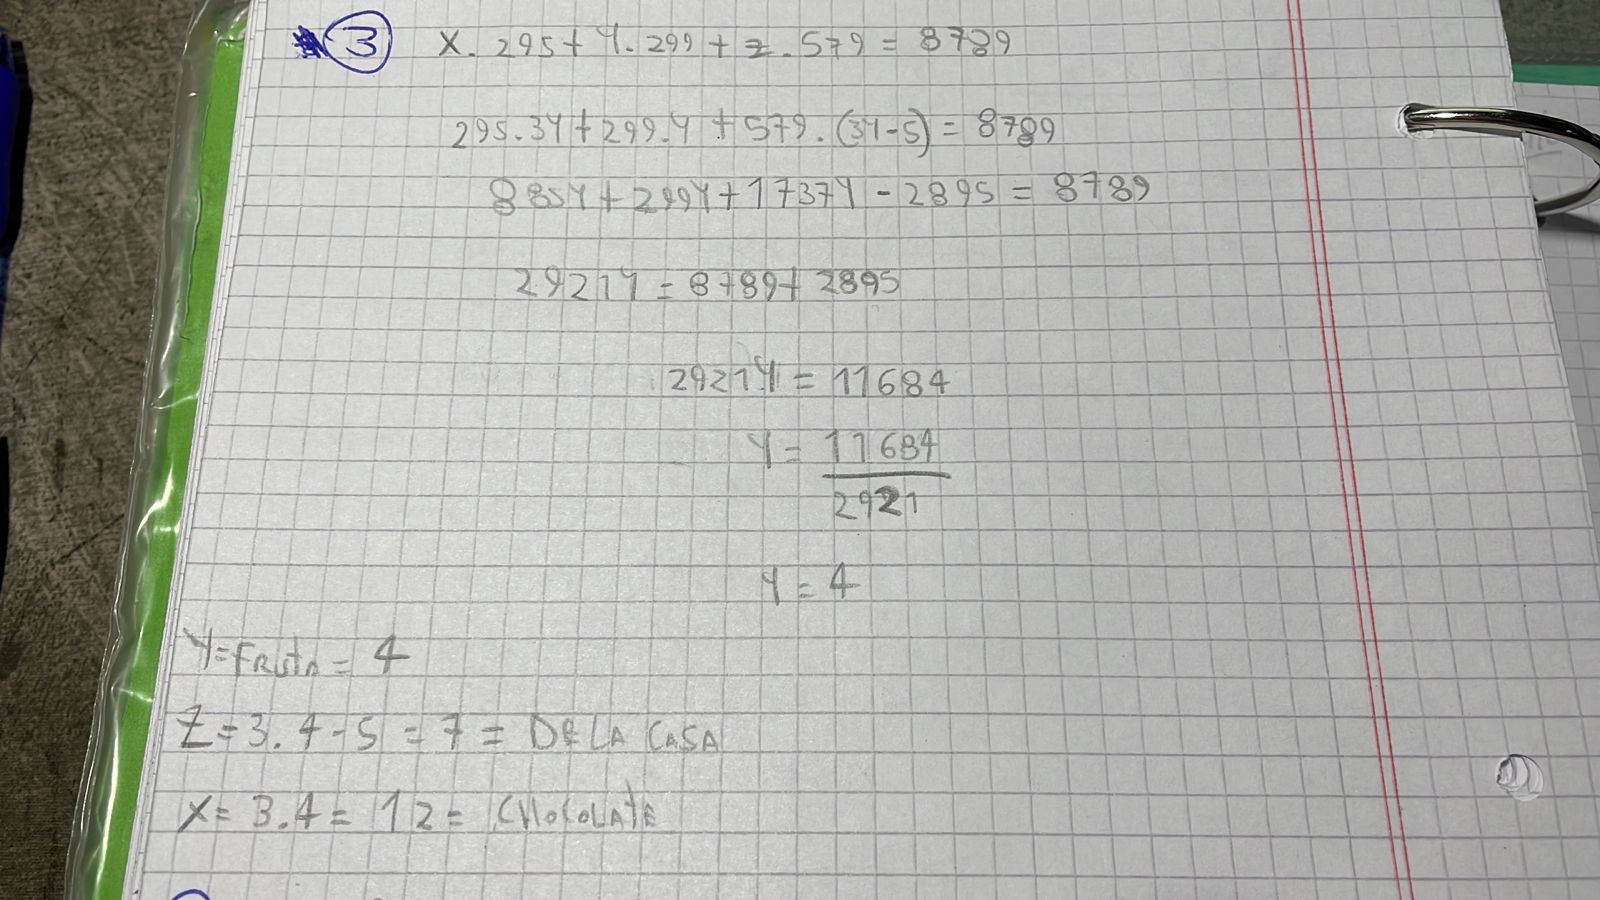 3 X. 295 + Y. 299 + Z. 579 = 8789
295.3Y + 299.Y + 579. (3Y-5) = 8789
885Y + 299Y + 1737Y - 2895 = 8789
2921Y = 8789 + 2895
2921Y = 11684
Y = 11684
2921
Y = 4
Y = FRUTA = 4
Z = 3.4 - 5 = 7 = DE LA CASA
X = 3.4 = 12 = CHOCOLATE